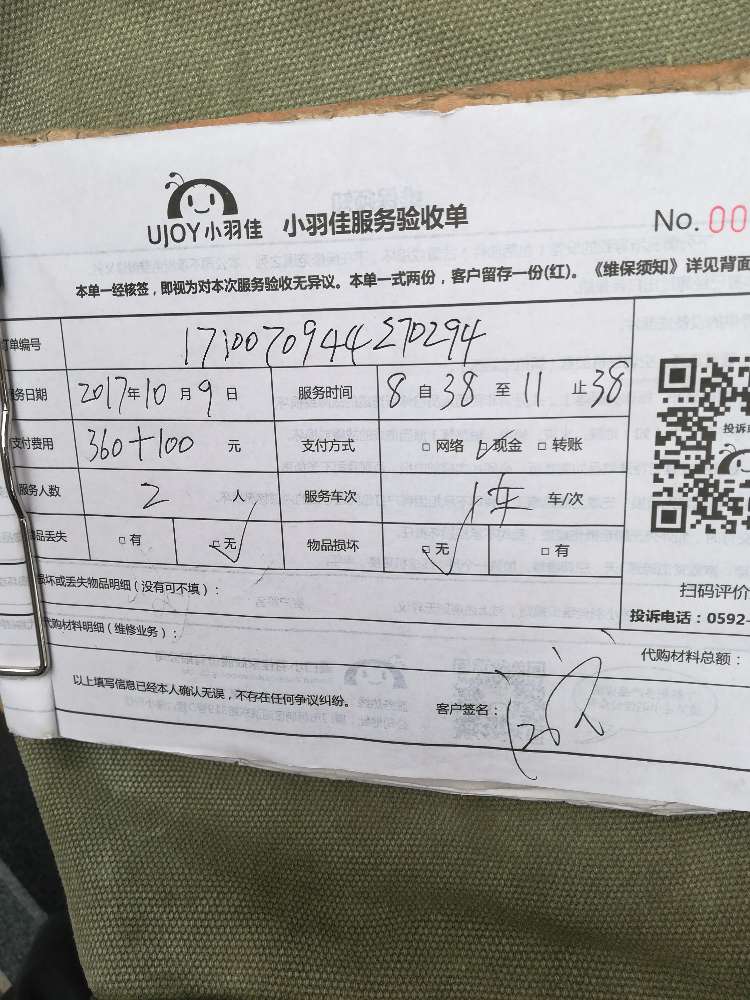 UJOY小羽佳 小羽佳服务验收单 No. 00
本单一经核签，即视为对本次服务验收无异议。本单一式两份，客户留存一份(红)。《维保须知》详见背面
订单编号 1710070944270294
服务日期 2017年10月9日 服务时间 8自38至11止38
支付费用 360+100 元 支付方式 □网络 □现金 □转账
服务人数 2 人 服务车次 1车 车/次
物品丢失 □有 □无 物品损坏 □无 □有
投诉单
扫码评价
损坏或丢失物品明细（没有可不填）：
投诉电话：0592-
代购材料明细（维修业务）：
代购材料总额：
以上填写信息已经本人确认无误，不存在任何争议纠纷。 客户签名：